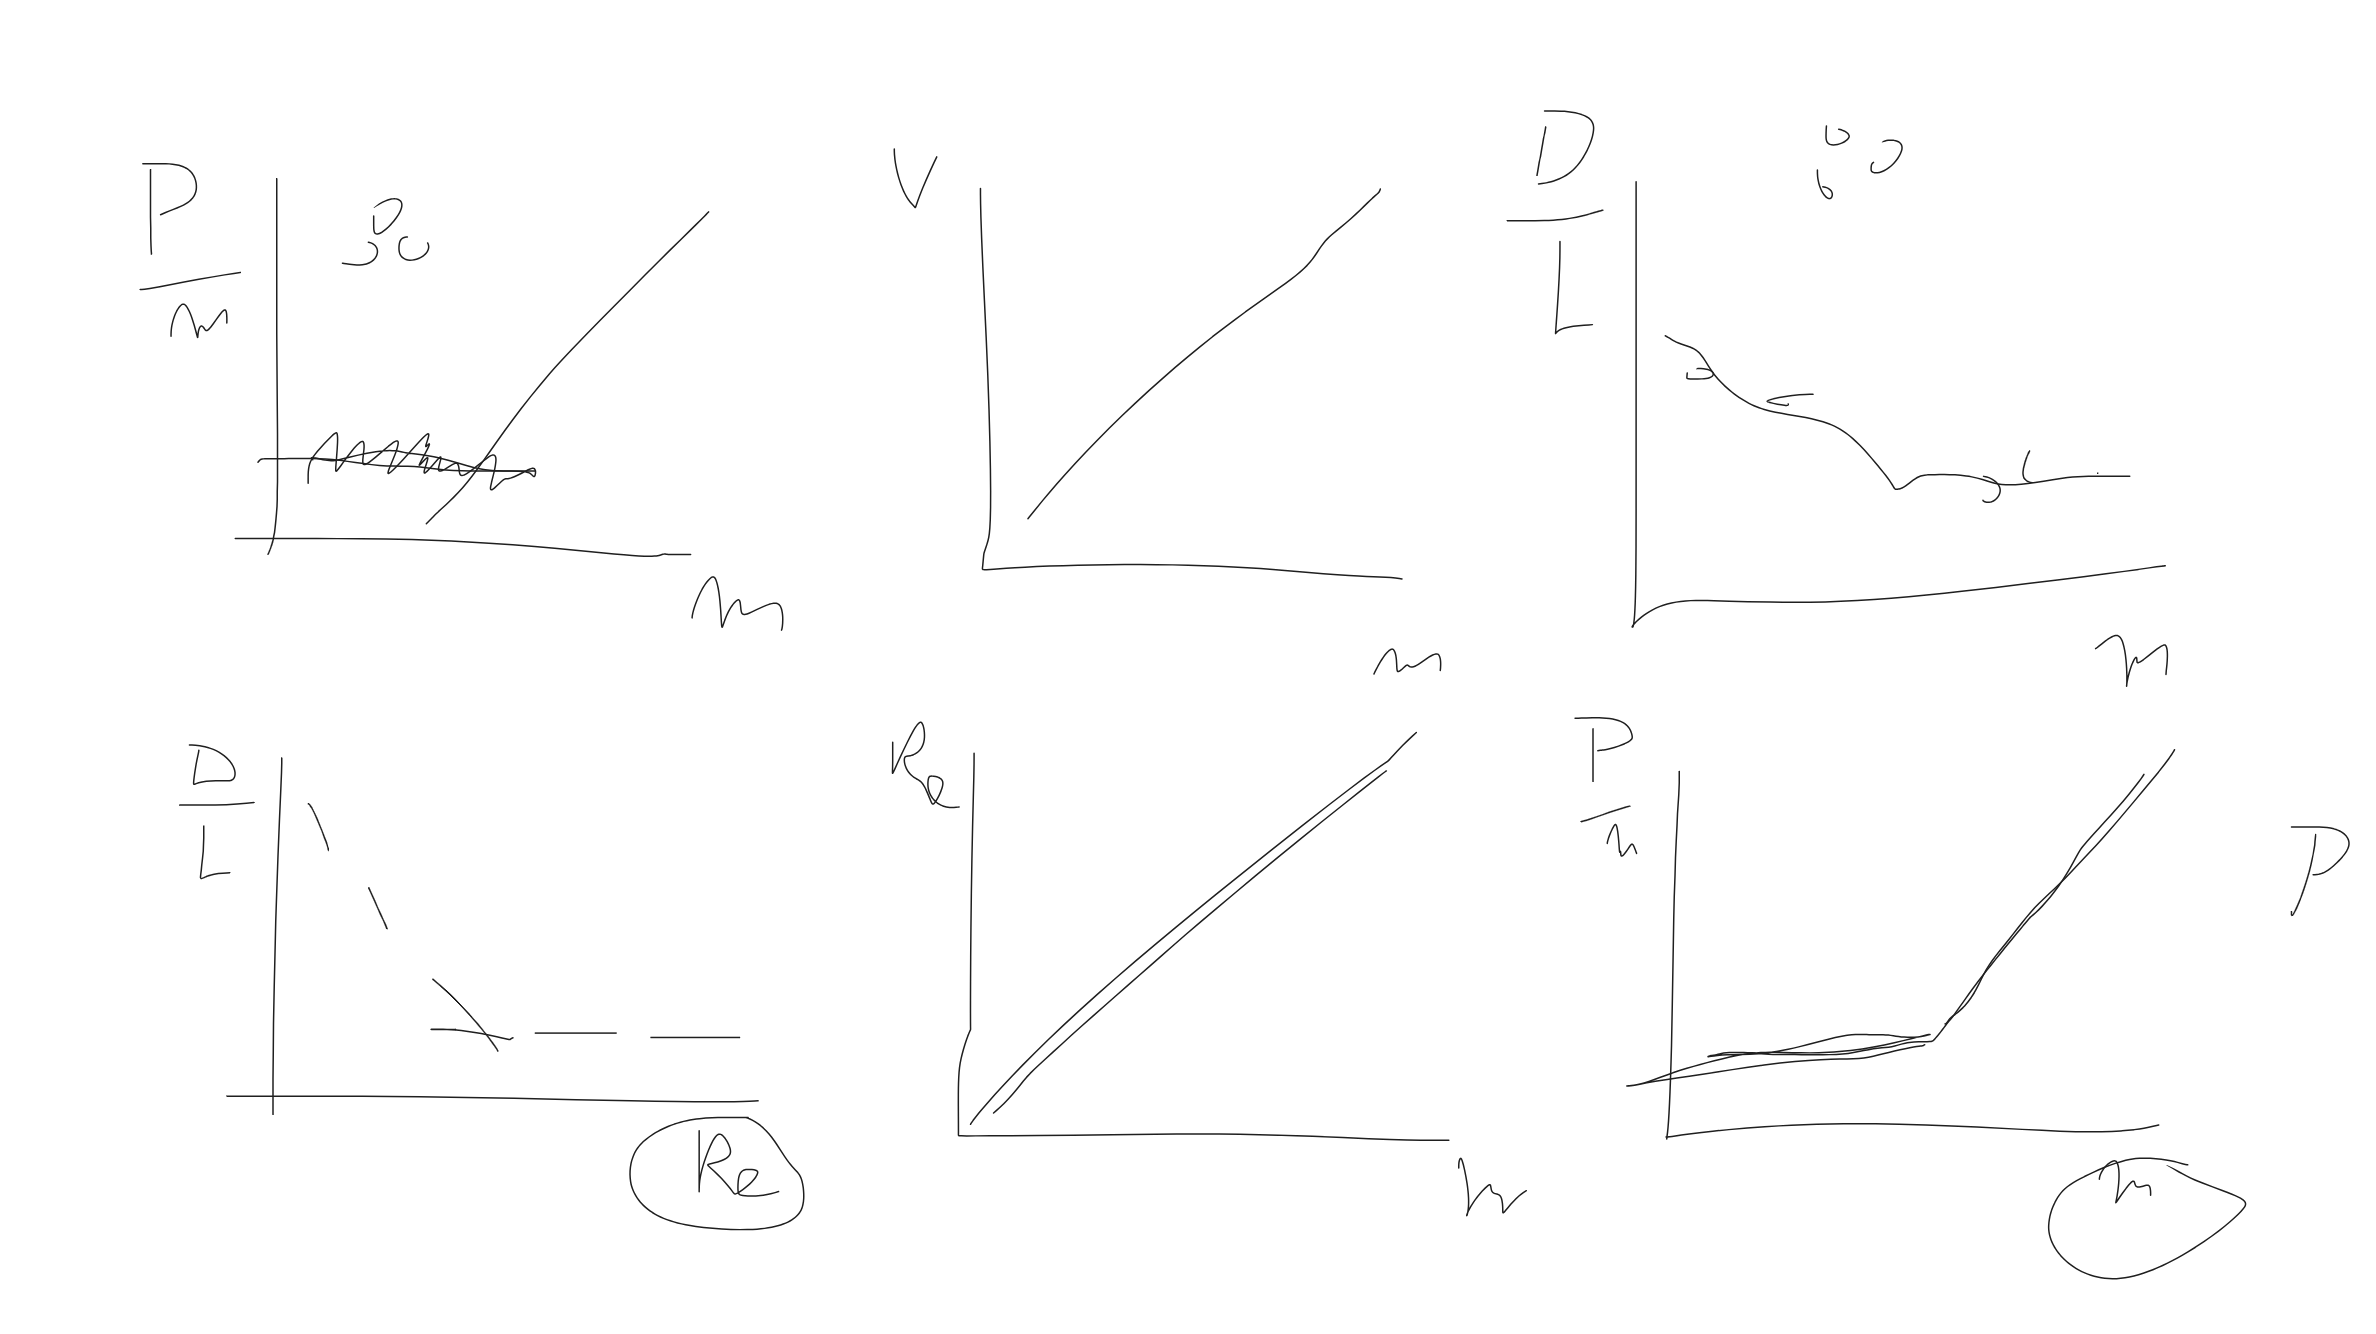 P/m
m
V
m
D/L
m
D/L
Re
Re
m
P/m
m
P